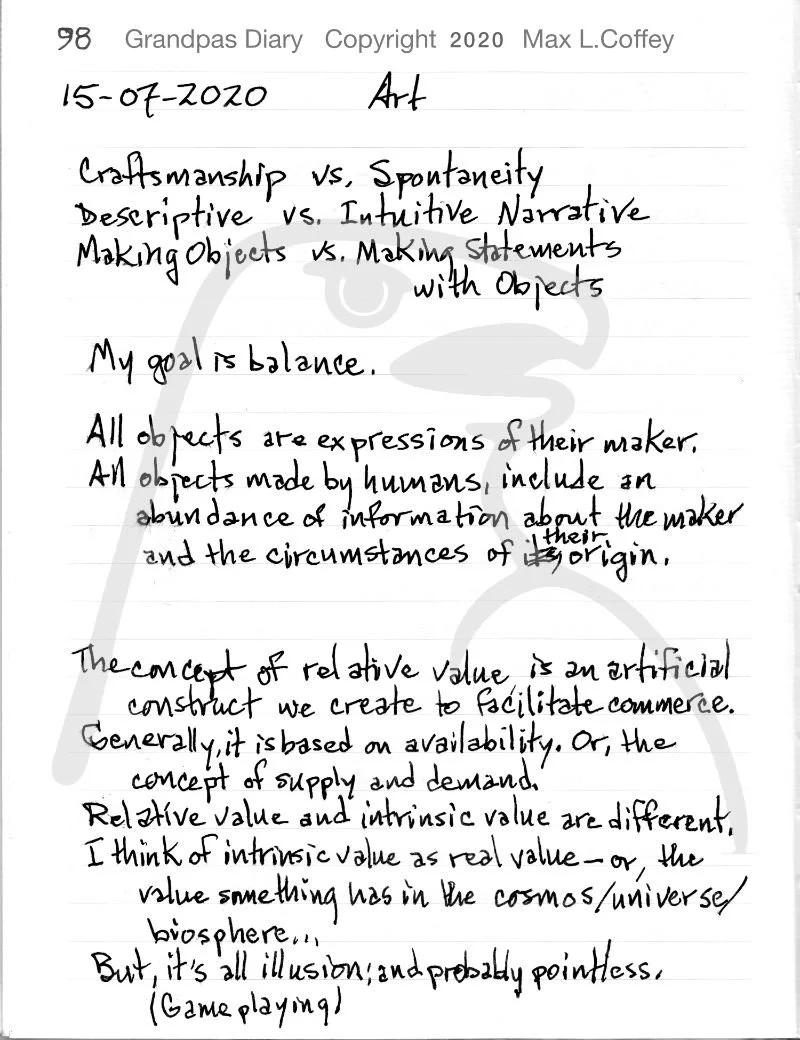 98 Grandpas Diary Copyright 2020 Max L.Coffey
15-07-2020 Art
Craftsmanship vs. Spontaneity
Descriptive vs. Intuitive Narrative
Making Objects vs. Making Statements
with Objects
My goal is balance.
All objects are expressions of their maker.
All objects made by humans, include an
abundance of information about the maker
and the circumstances of their origin.
The concept of relative value, is an artificial
construct we create to facilitate commerce.
Generally, it is based on availability. Or, the
concept of supply and demand.
Relative value and intrinsic value are different.
I think of intrinsic value as real value – or, the
value something has in the cosmos/universe/
biosphere...
But, it's all illusion; and probably pointless.
(Game playing)